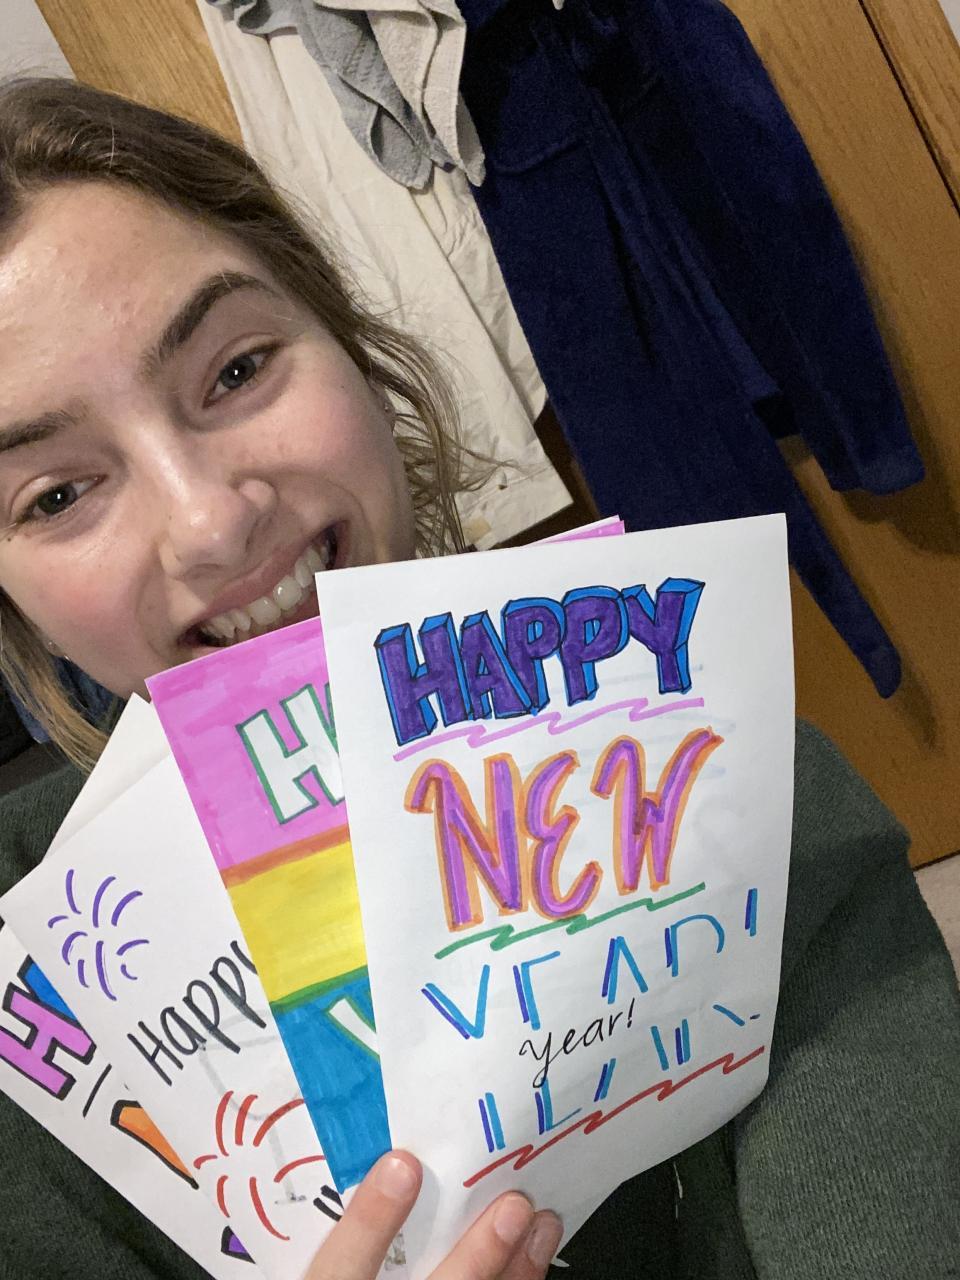 HAPPY
NEW
YEAR!
year!
H
Happy
H